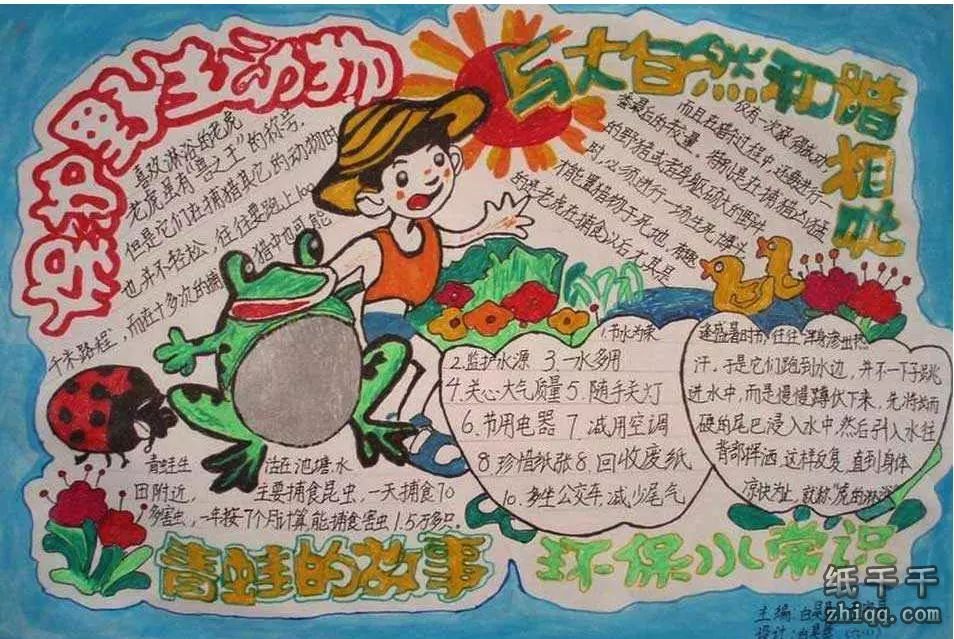 保护野生动物
与大自然和谐
相处
喜欢淋浴的老虎
老虎虽有"兽之王"的称号.
但是它们在捕猎其它的动物时
也并不轻松,往往要跑上100
千米路程,而在十多次的捕猎中也可能
仅有一次获得成功
而且在捕猎过程中,还要进行一
番最后的较量。特别是在捕猎凶猛
的野猪或者身躯硕大的野牛
时,必须进行一场生死搏斗
才能置猎物于死地,有趣
的是老虎在捕食以后尤其是
逢盛暑时节,往往浑身渗出热
汗.于是它们跑到水边,并不一下子跳
进水中,而是慢慢蹲伏下来,先将
硬的尾巴浸入水中,然后引入水往
背部挥洒,这样反复,直到身体
凉快为止,就称"虎的淋浴
1.节水为荣
2.监护水源 3.一水多用
4.关心大气质量 5.随手关灯
6.节用电器 7.减用空调
8.珍惜纸张 8.回收废纸
10.多坐公交车,减少尾气
青蛙生活在池塘,水
田附近,主要捕食昆虫,一天捕食70
多害虫,一年按7个月计算,能捕食害虫1.5万多只。
青蛙的故事
环保小常识
主编:白
设计:
纸千干
zhiqq.com